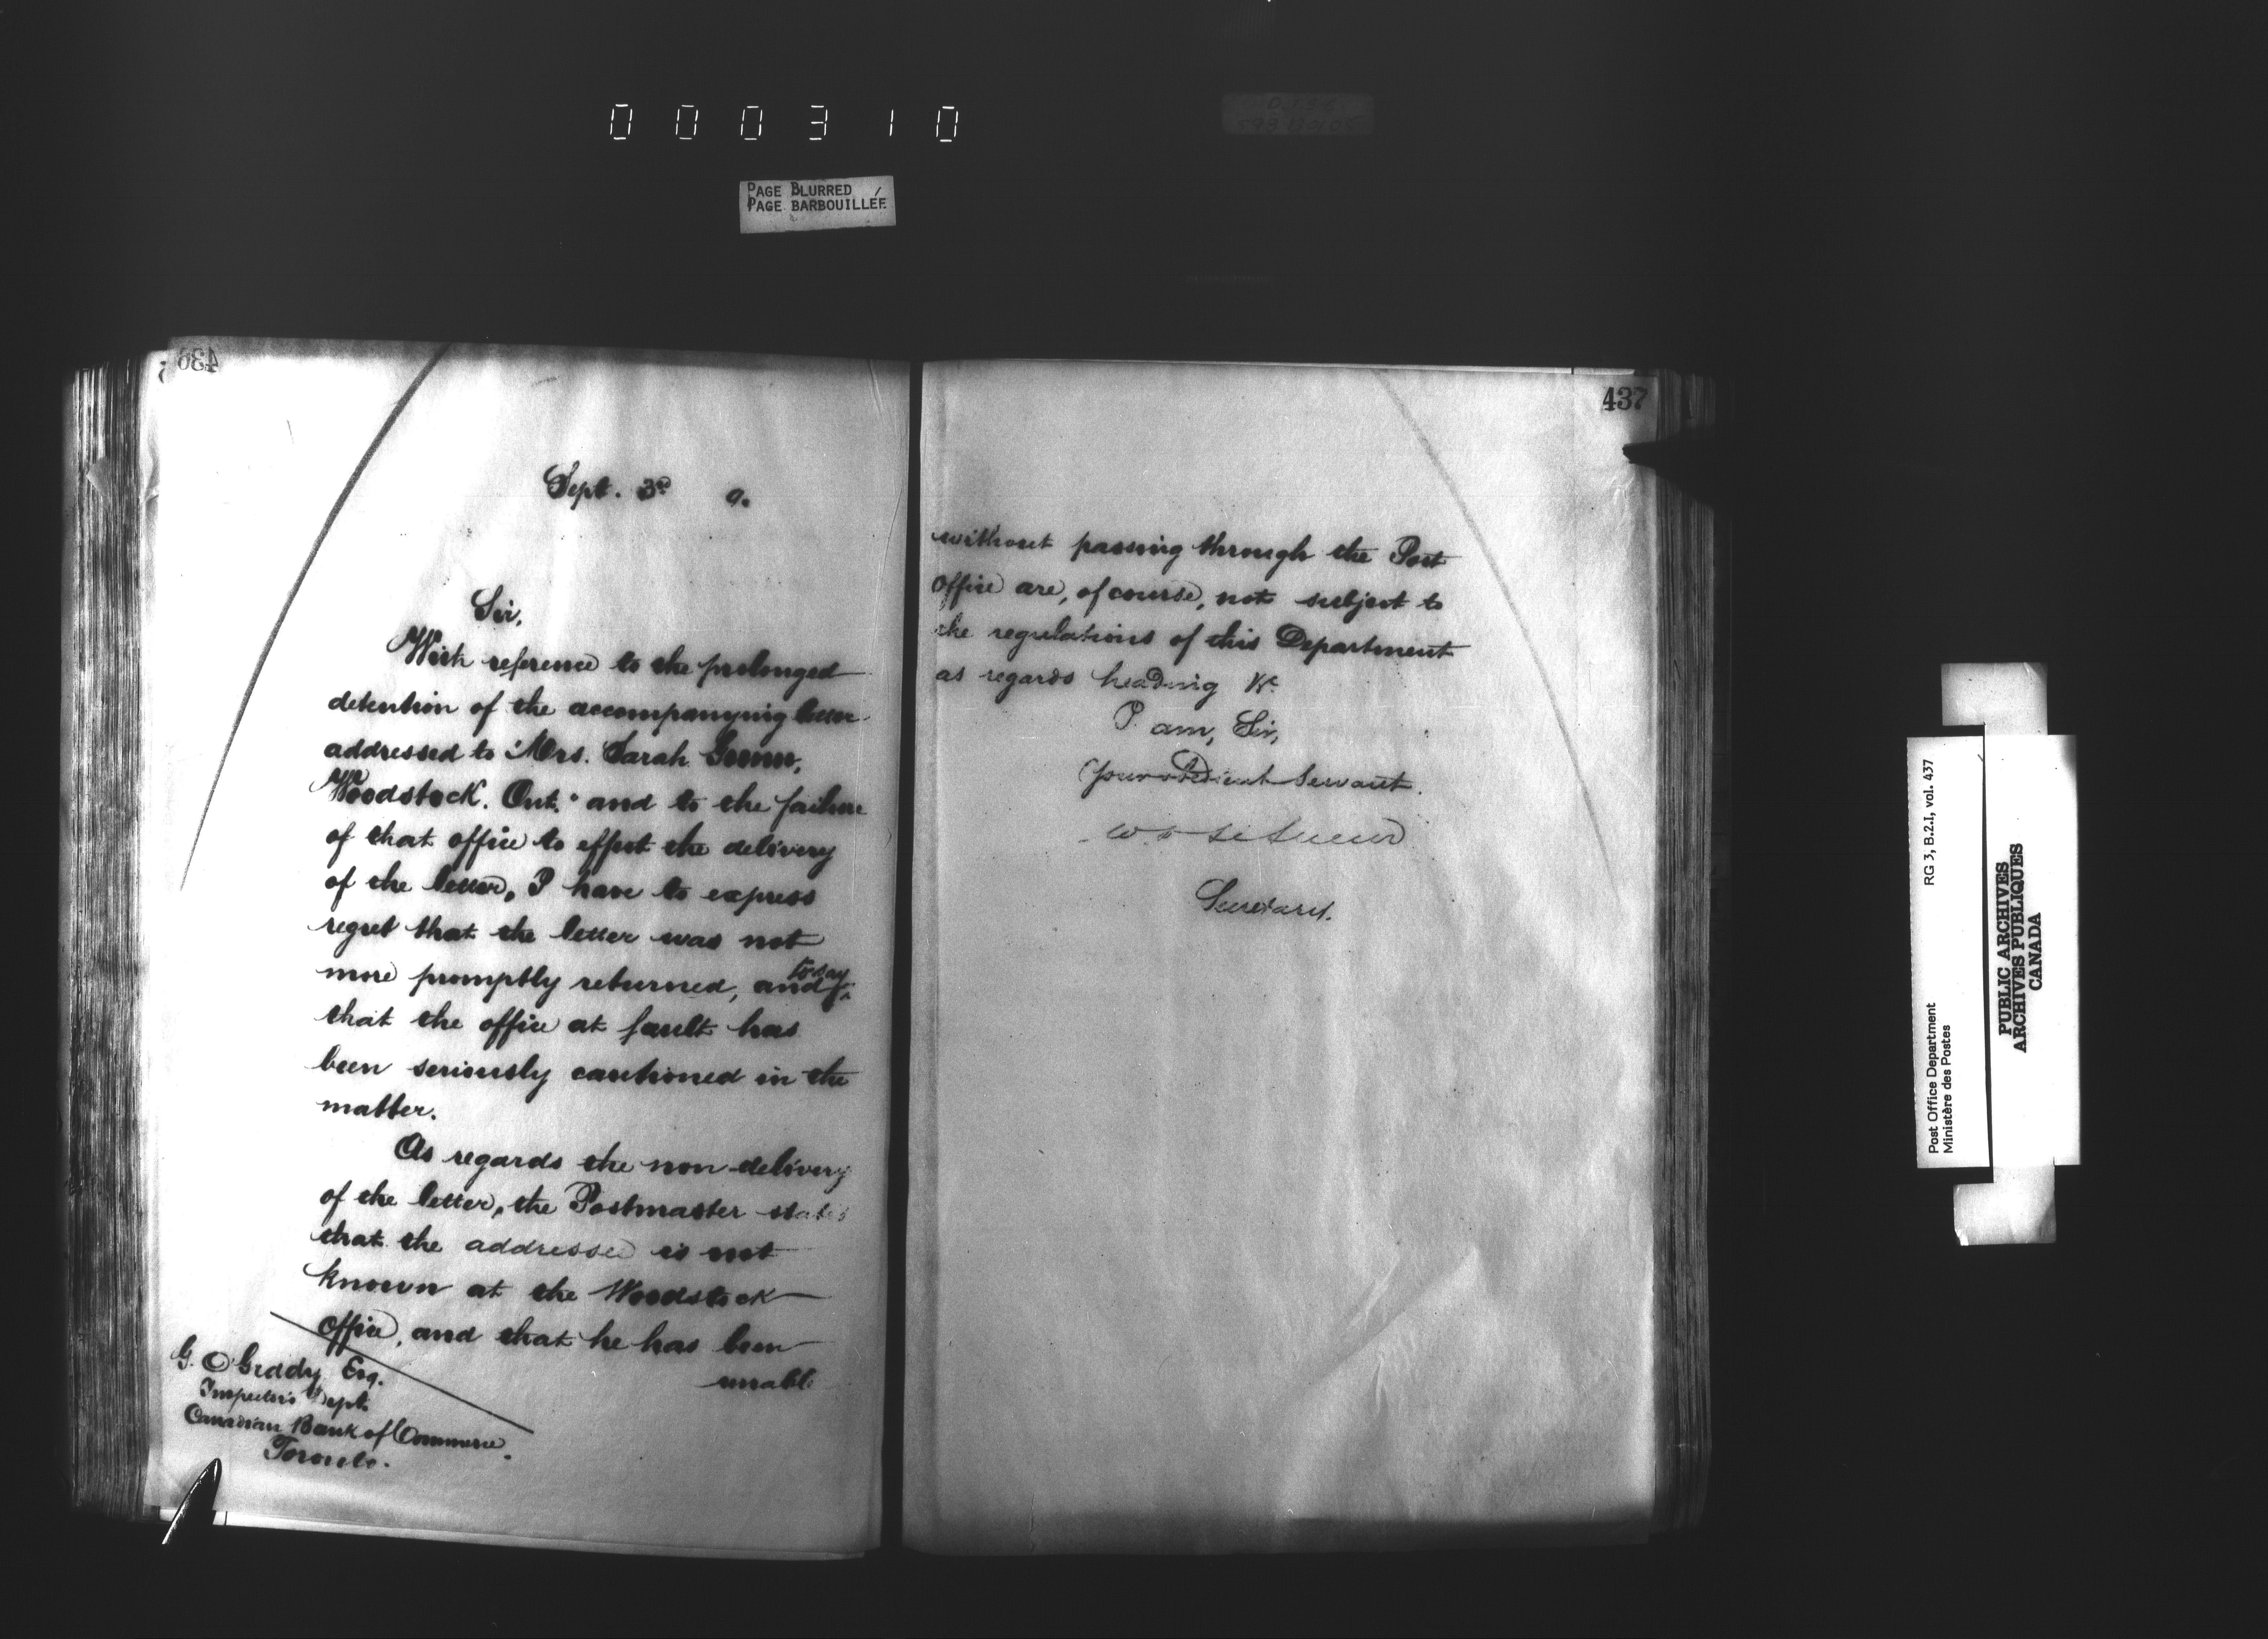 000310
PAGE BLURRED
PAGE BARBOUILLÉE
436
Sept. 3rd 9.
Sir,
With reference to the prolonged
detention of the accompanying letter
addressed to "Mrs. Sarah
Woodstock. Ont." and to the failure
of that office to effect the delivery
of the letter, I have to express
regret that the letter was not
more promptly returned, and to say
that the office at fault has
been seriously cautioned in the
matter.
As regards the non-delivery
of the letter, the Postmaster states
that the addressee is not
known at the Woodstock
office, and that he has been
unable
G. O'Grady Esq.
Inspector's Dept.
Canadian Bank of Commerce.
Toronto.
437
without passing through the Post
Office are, of course, not subject to
the regulations of this Department
as regards heading &c.
I am, Sir,
Your obedient Servant.
W. D. LeSueur
Secretary.
Post Office Department
Ministère des Postes
RG 3, B.2.I, vol. 437
PUBLIC ARCHIVES
ARCHIVES PUBLIQUES
CANADA